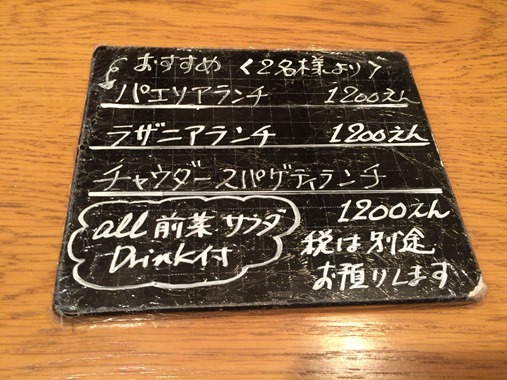 おすすめ 〈2名様より〉
パエリアランチ 1200えん
ラザニアランチ 1200えん
チャウダースパゲティランチ
1200えん
all 前菜 サラダ
Drink付
税は別途
お預りします